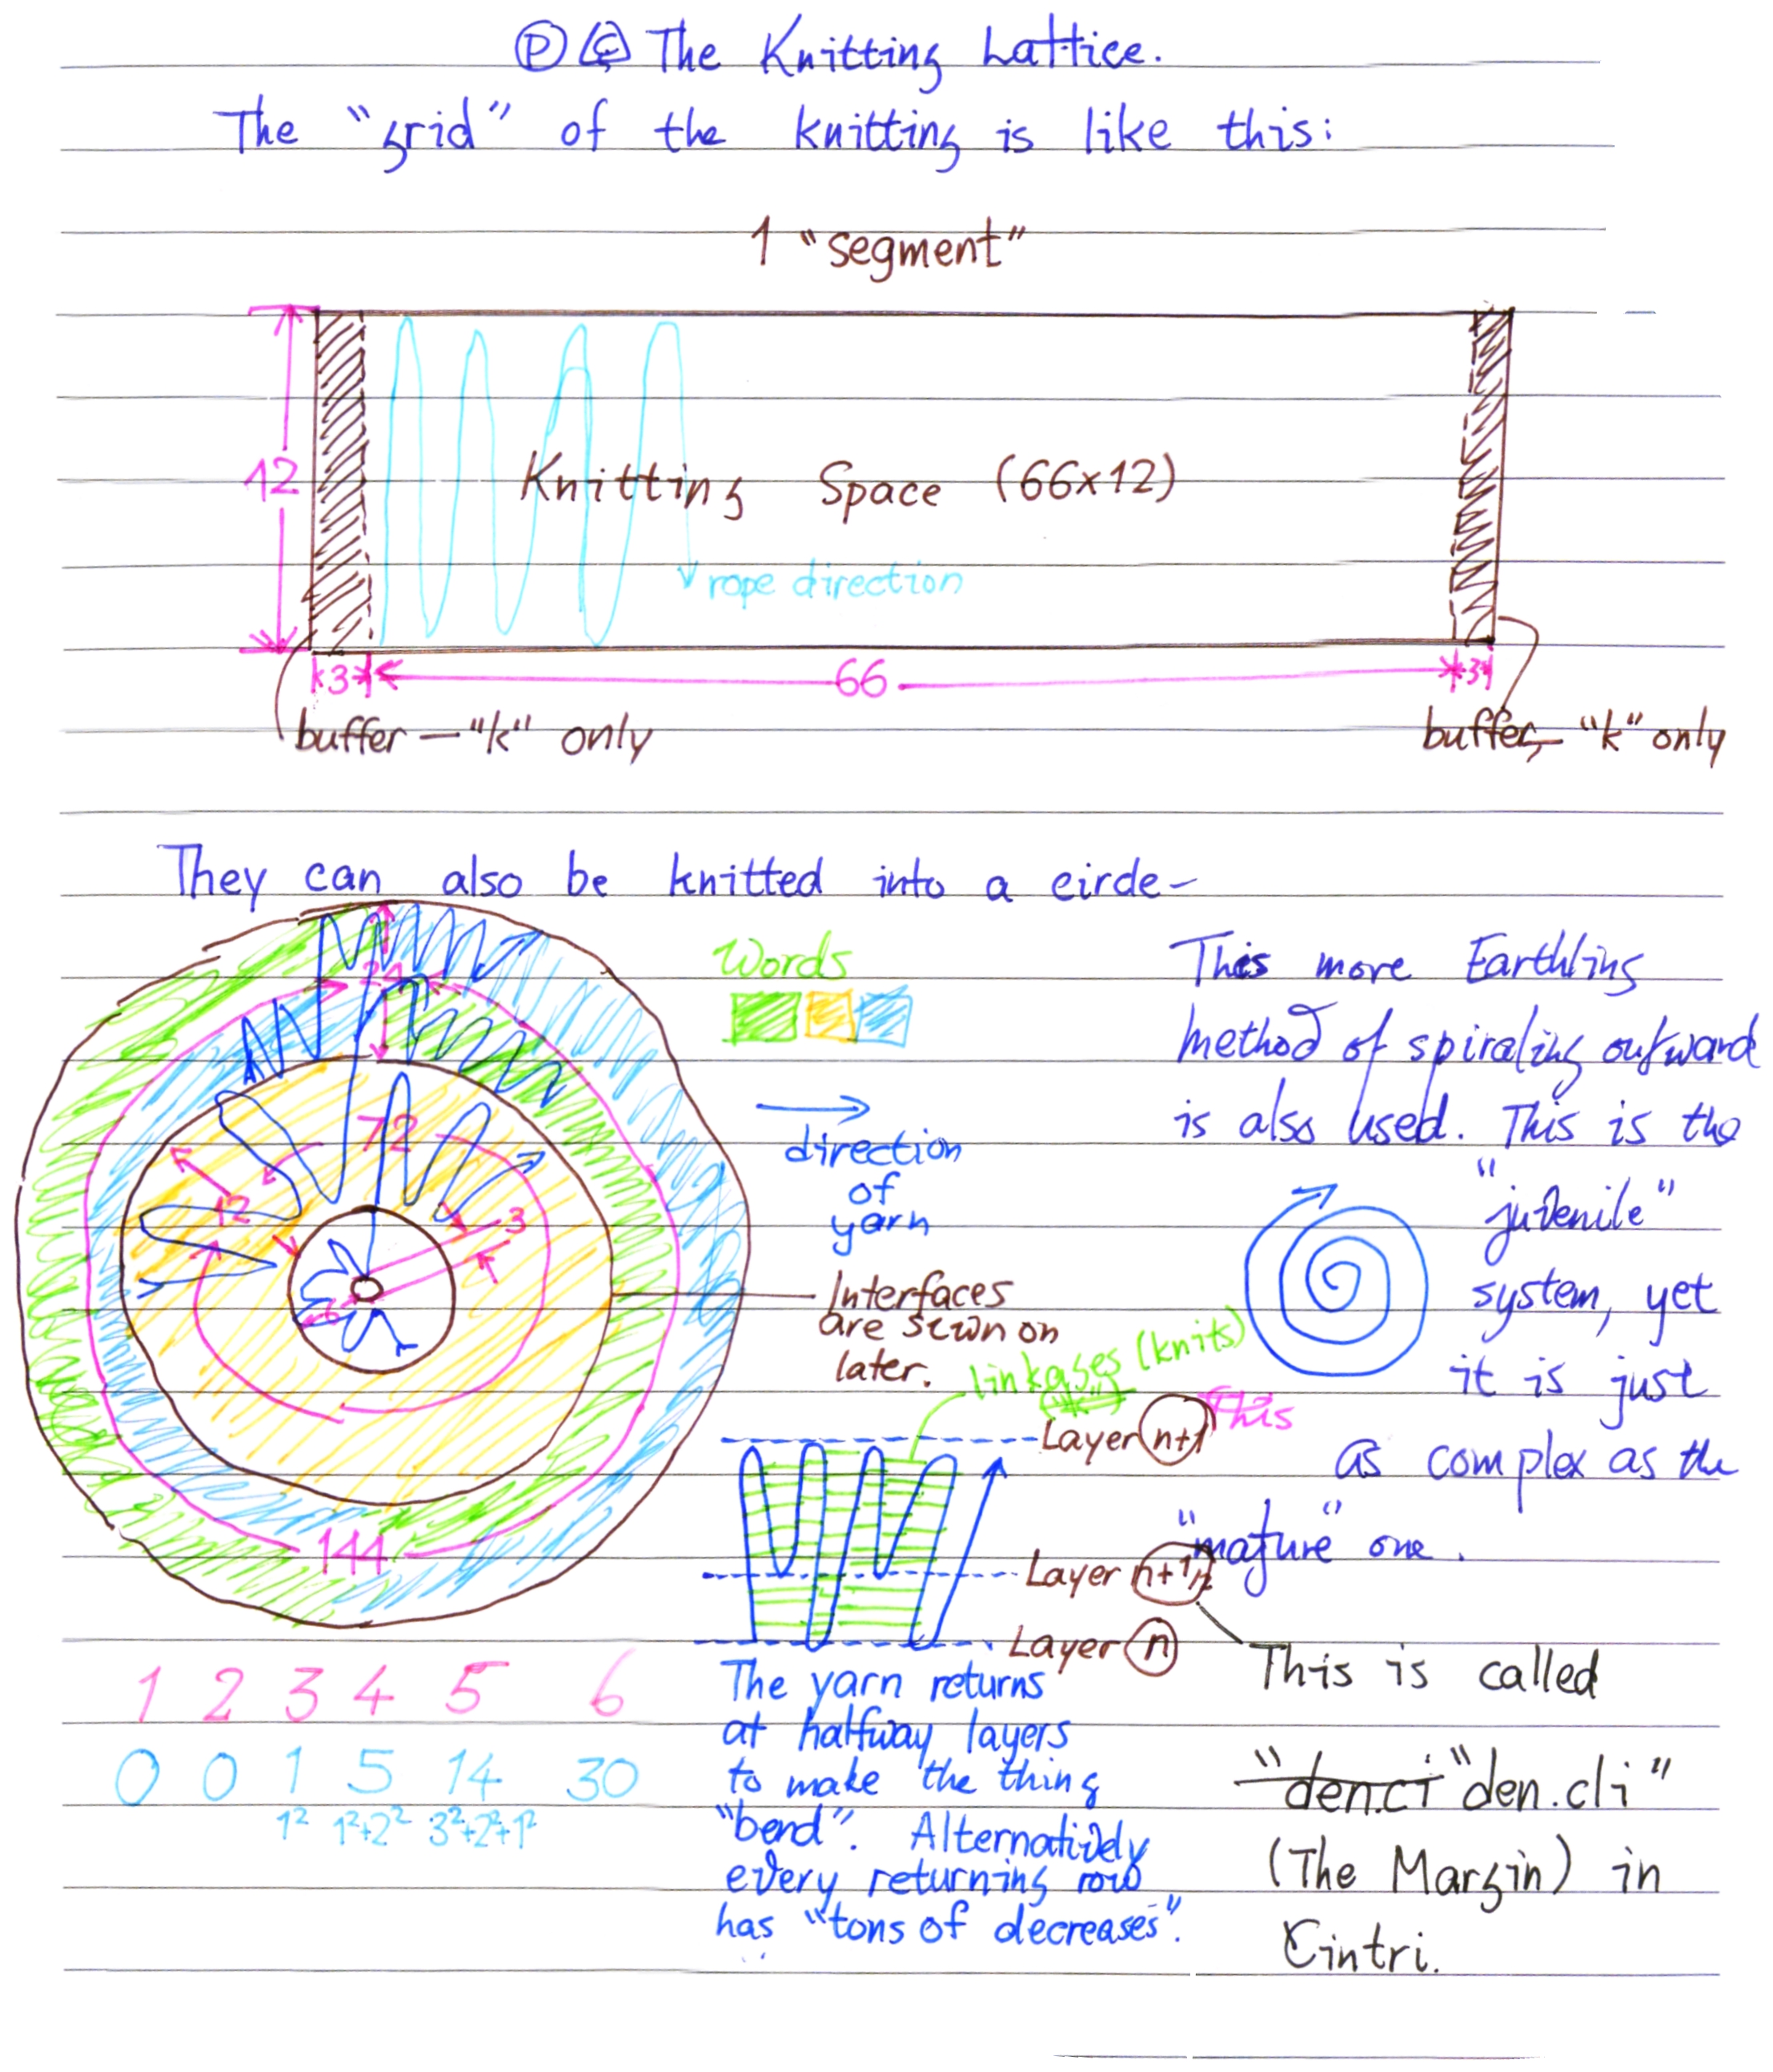 Ⓟ The Knitting Lattice.
The "grid" of the knitting is like this:
1 "segment"
12
Knitting Space (66x12)
rope direction
3
66
3
buffer — "k" only
buffer — "k" only
They can also be knitted into a circle-
24
72
12
3
6
144
Words
direction
of
yarn
Interfaces
are sewn on
later.
This more Earthling
method of spiraling outward
is also used. This is the
"juvenile"
system, yet
it is just
as complex as the
"mature" one.
linkages (knits)
Layer n+1
This
Layer n+1/2
Layer n
The yarn returns
at halfway layers
to make the thing
"bend". Alternatively
every returning row
has "tons of decreases".
This is called
"den.ci "den.cli"
(The Margin) in
Cintri.
1 2 3 4 5 6
0 0 1 5 14 30
1² 1²+2² 3²+2²+1²